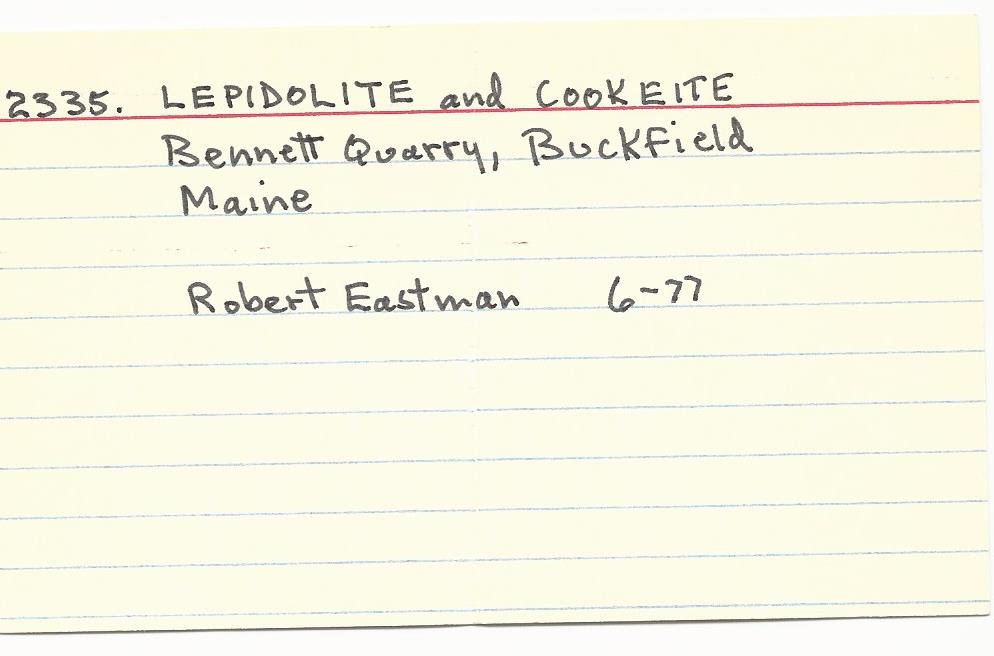 2335. LEPIDOLITE and COOKEITE
Bennett Quarry, Buckfield
Maine
Robert Eastman 6-77